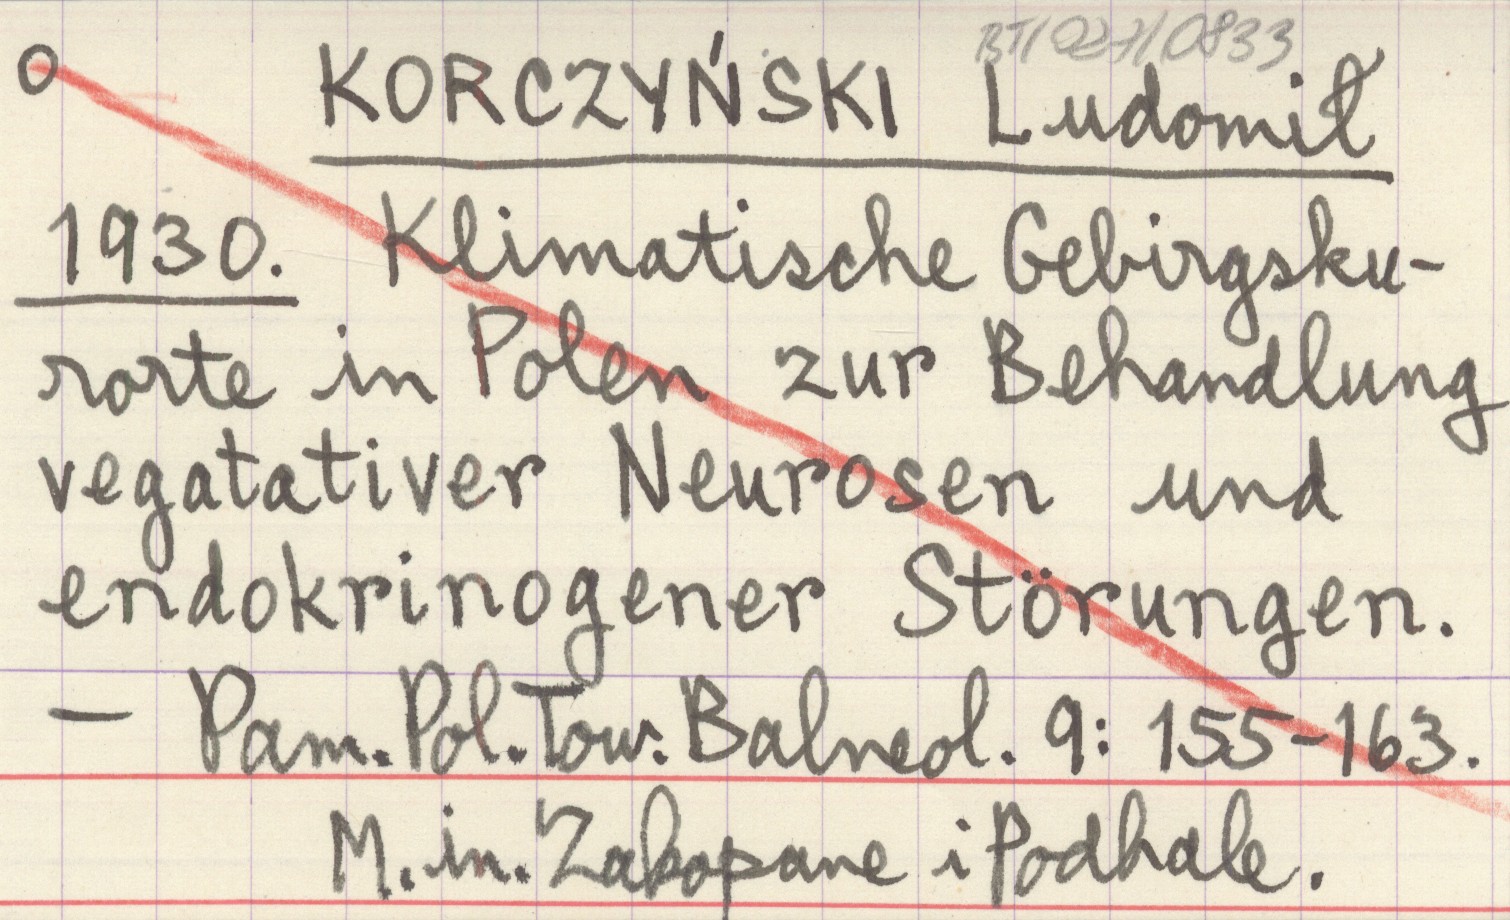 BT/027/0833
KORCZYŃSKI Ludomił
1930. Klimatische Gebirgsku-
rorte in Polen zur Behandlung
vegatativer Neurosen und
endokrinogener Störungen.
— Pam. Pol. Tow. Balneol. 9: 155-163.
M. in. Zakopane i Podhale.